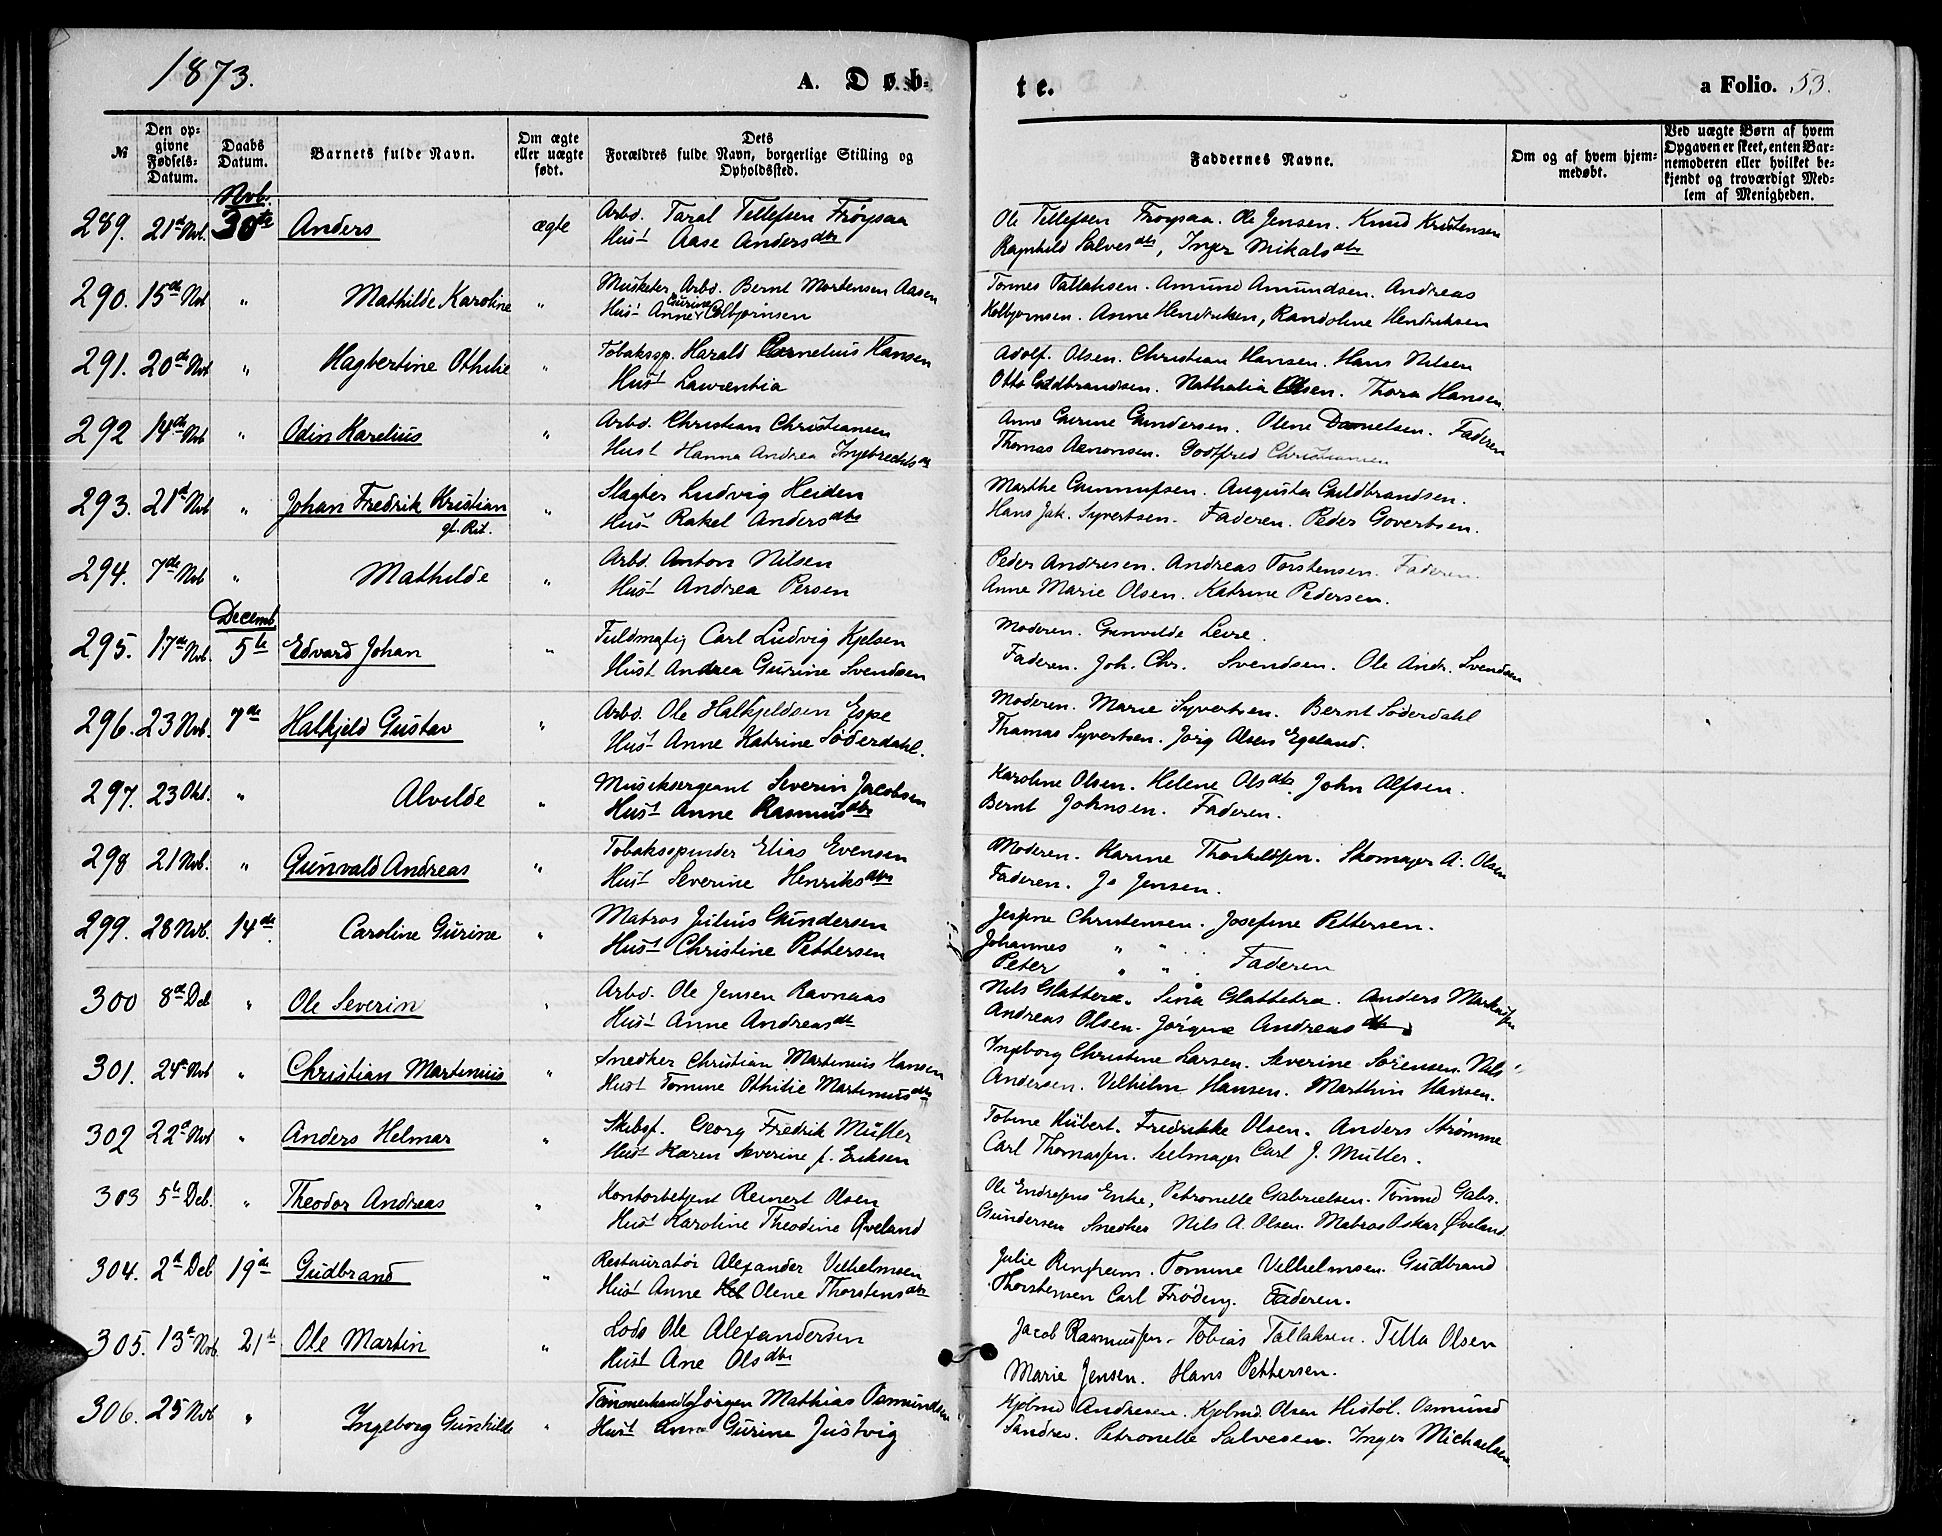 1873.
A. Døb-
te.
a Folio. 53.
№
Den opgivne Fødsels-Datum.
Daabs Datum.
Barnets fulde Navn.
Om ægte eller uægte født.
Dets Forældres fulde Navn, borgerlige Stilling og Opholdssted.
Faddernes Navne.
Om og af hvem hjemmedøbt.
Ved uægte Børn af hvem Opgaven er skeet, enten Barnemoderen eller hvilket bekjendt og troværdigt Medlem af Menigheden.
Novb.
289. 21de Nvb. 30te Anders ægte Arbd. Taral Tellefsen Frøysaa
Hust Aase Andersdtr
Ole Tellefsen Froysaa. Ole Jensen. Knud Kristensen
Ragnhild Salvesdtr, Inger Mikalsdtr
290. 15de Nvb " Mathilde Karoline " Musketer, Arbd. Bernt Mortensen Aasen
Hust Anne Gurine Colbjørnsen
Tomes Tallaksen. Amund Amundsen. Andreas
Kolbjornsen. Anne Hendriksen, Randoline Hendriksen
291. 20de Nvb " Hagbertine Othilie " Tobakssp. Harald Cornelius Hansen
Hust Laurentia
Adolf. Olsen. Christian Hansen. Hans Nilsen
Otto Guldbrandsen. Nathalia Olsen. Thora Hansen.
292 14de Nvb " Odin Karelius " Arbd. Christian Christiansen
Hust Hanna Andrea Ingebrechtsdtr
Anne Gurine Gundersen. Olene Danielsen. Faderen
Thomas Aanonsen. Godtfred Christiansen
293. 21de Nvb " Johan Fredrik Kristian " Slagter Ludvig Heiden
gl. Rit.
Hus Rakel Andersdtr
Marthe Gunnufsen. Augusta Guldbrandsen.
Hans Jak. Syvertsen. Faderen. Peder Govertsen.
294. 7de Nvb " Mathilde " Arbd. Anton Nilsen
Hust Andrea Persen
Peder Andresen. Andreas Torstensen. Faderen.
Anne Marie Olsen. Katrine Pedersen.
Decemb
295. 17de Nvb. 5te Edvard Johan " Fuldmægtig Carl Ludvig Kjelsen
Hust Andrea Gurine Svendsen
Moderen. Gunvilde Leire.
Faderen. Joh. Chr. Svendsen. Ole Andr. Svendsen
296. 23 Nvb. 7de Halkjeld Gustav " Arbd. Ole Halkjeldsen Espe
Hust Anne Katrine Söderdahl.
Moderen. Marie Syvertsen. Bernt Söderdahl
Thomas Syvertsen. Jörg Olsen Egeland.
297. 23 Okt. " Alvilde " Musiksergeant Severin Jacobsen
Hust Anne Rasmusdtr
Karoline Olsen. Helene Olsdtr. John Alfsen.
Bernt Johnsen. Faderen.
298 21 Nvb. " Gunvald Andreas " Tobaksspinder Elias Evensen
Hust Severine Henriksdtr
Moderen. Karine Thorkildsen. Skomager A. Olsen
Faderen. Jo Jensen.
299. 28 Nvb. 14de. Caroline Gurine " Matros Julius Gundersen
Hust Christine Pettersen
Jesine Christensen. Josefine Pettersen.
Johannes " "
Peter " " . Faderen
300 8de Deb " Ole Severin " Arbd. Ole Jensen Ravnaas
Hust Anne Andreasdt
Nils Glattetre. Sina Glattetra. Anders Markussen
Andreas Olsen. Jørgine Andreasdtr.
301. 24 Nvb " Christian Martinius " Snedker Christian Martinius Hansen
Hust Tomine Othilie Martiniusdtr
Ingeborg Christine Larsen. Severine Sörensen. Nils
Andersen. Vilhelm Hansen. Marthin Hansen.
302 22de Nvb " Anders Helmar " Skibsf. Georg Fredrik Muller
Hust Karen Severine f. Eriksen
Tobine Hübert. Fredrikke Olsen. Anders Strømme
Carl Thomassen. Seilmager Carl J. Muller.
303 5te Deb. " Theodor Andreas " Kontorbetjent Reinert Olsen
Hust Karoline Theodine Øveland
Ole Endresens Enke, Petronelle Gabrielsen. Gabr.
Gundersen Snedker Nils A. Olsen. Matros Oskar Øveland
304. 2d Deb 19de Gudbrand " Restauratør Alexander Vilhelmsen
Hust Anne Olene Thorstensdtr
Julie Ringheim. Tomine Vilhelmsen. Gudbrand
Thorstensen Carl Frøding. Faderen.
305. 13de Nvb. 21de Ole Martin " Lods Ole Alexandersen
Hust Ane Olsdtr
Jacob Rasmussen. Tobias Tallaksen. Tilla Olsen
Marie Jensen. Hans Pettersen.
306. 25 Nvb " Ingeborg Gunhilde " Tømmerhandl. Jörgen Mathias Osmundsen
Hust Anne Gurine Justvig
Andresen. Olsen Osmund
Sandrev. Petronelle Salvesen. Inger Michaelsen